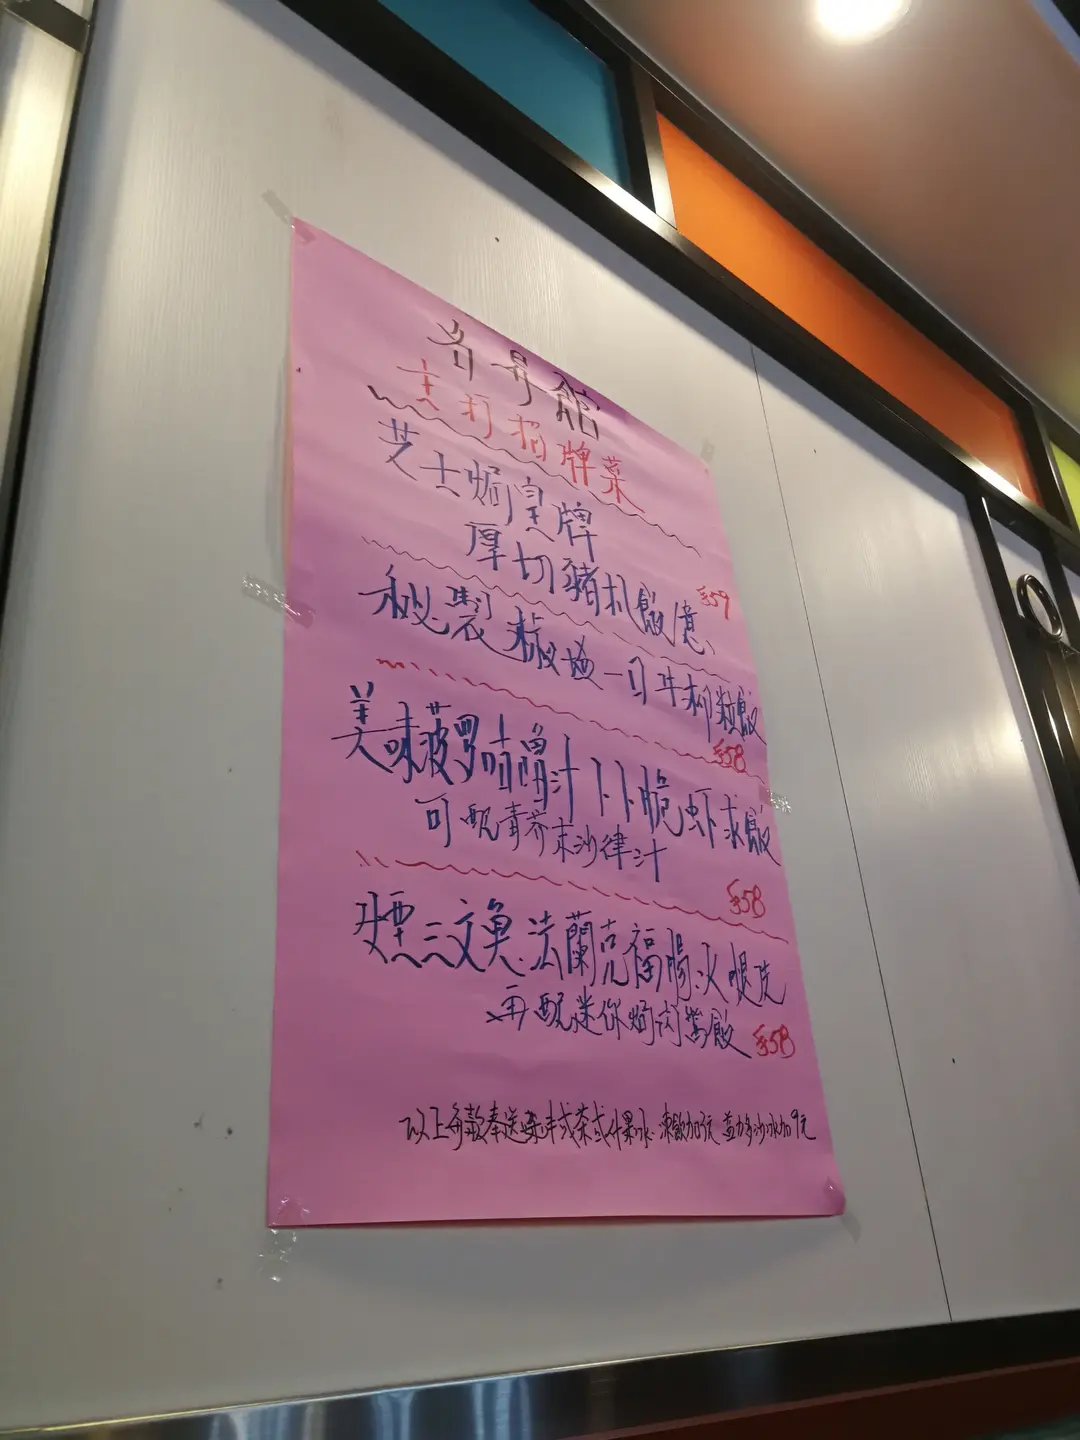 館
主打招牌菜
芝士焗皇牌
厚切豬扒飯意
$59
秘製椒鹽一口牛柳粒飯
$58
美味菠罗咕嚕汁卜卜脆虾求飯
可配青芥末沙律汁
$58
烟三文魚法蘭克福腸火腿
再配迷你焗肉醬飯
$58
以上每款奉送 茶或什果冰 凍飲加 元 益力多沙冰加9元